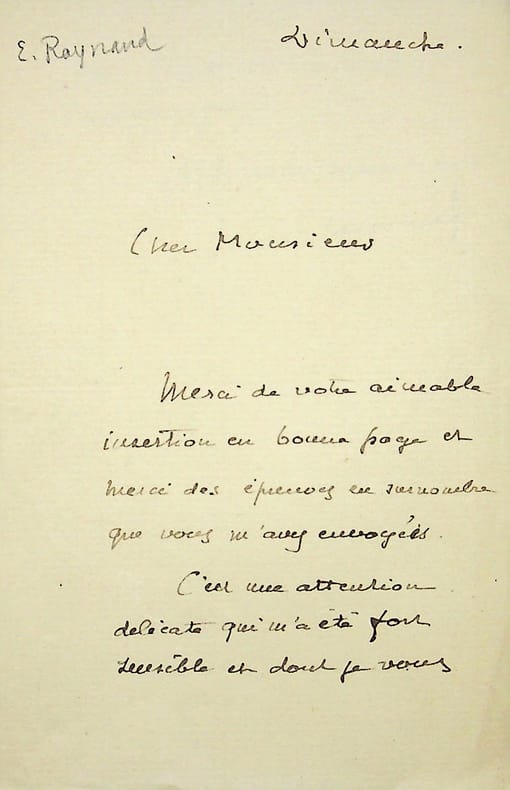 E. Raynaud
Dimanche.
Cher Monsieur
Merci de votre aimable
insertion en bonne page et
merci des épreuves en surnombre
que vous m'avez envoyées.
C'est une attention
délicate qui m'a été fort
sensible et dont je vous